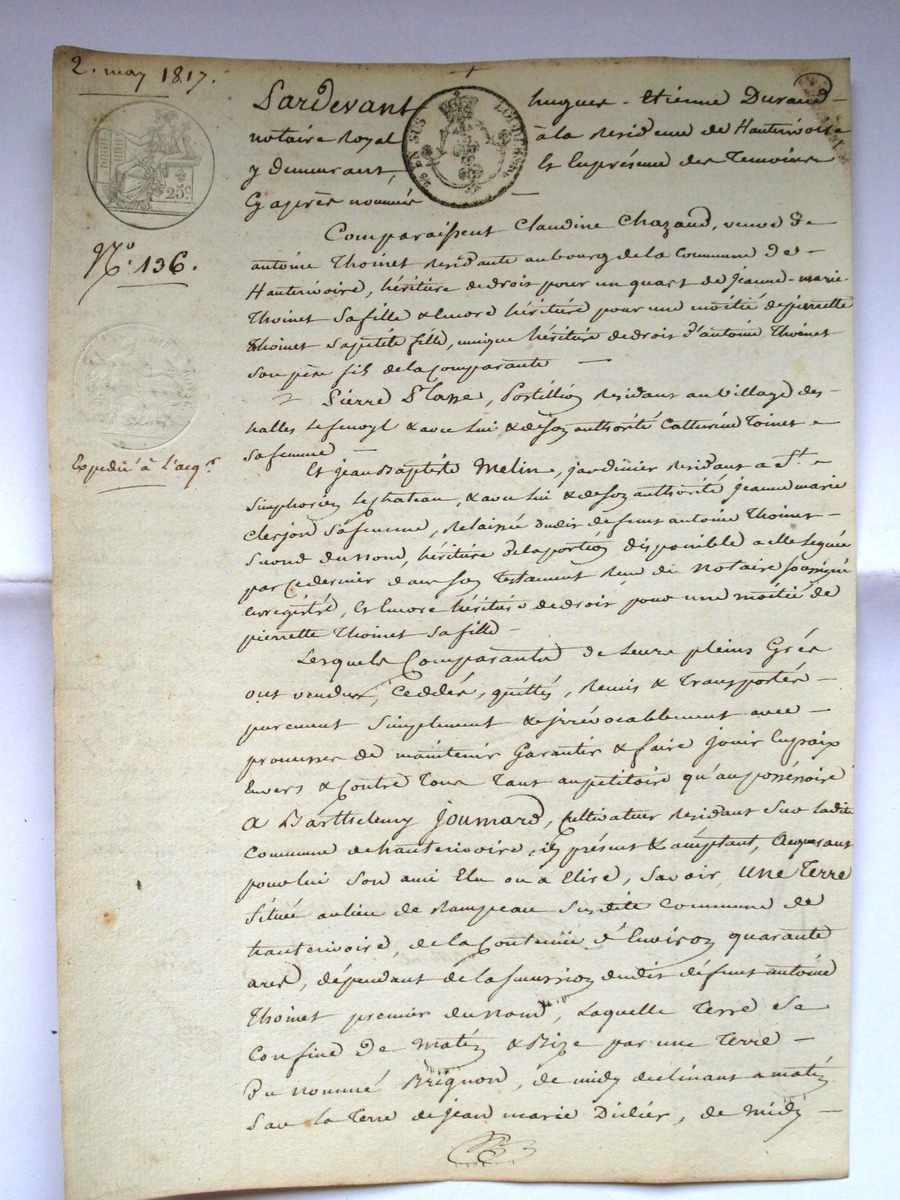 2. may 1817.
Pardevant hugues - Etienne Durand -
notaire Royal à la Residence de Hauterivoire
y demeurant, Et En présence des Temoins
Cy après nommés —
25 c.
EN SUS
N.º 136.
Comparaissent Claudine Chazaud, veuve de
antoine Thoinet residante au bourg de la Commune de -
Hauterivoire, héritière de droit pour un quart de Jeanne-marie
Thoinet sa fille & Encore héritière pour une moitié de pierrette
Thoinet sa petite fille, unique héritière de droit d'antoine Thoinet
son père fils de la Comparante —
Pierre Postillion Residant au village des -
halles & avec lui & de son authorité Catherine Toinet -
sa femme —
Expedié à L'acq.r
Et Jean Baptiste Melin, jardinier Residant a St. -
Simphorien le chateau, & avec lui & de son authorité, Jeanne marie
Clerjon sa femme, Relaissée dudit defunt antoine Thoinet -
Second du nom, héritière de la portion disponible a elle leguée
par ce dernier dans son Testament Reçu du Notaire soussigné
enregistré, Et Encore héritière de droit pour une moitié de
pierrette Thoinet sa fille -
Lesquels Comparants de Leurs pleins Grés
ont vendus, Ceddés, quittés, Remis & Transportés -
purement Simplement & jrrévocablement avec -
promesses de maintenir Garantir & faire jouir En paix
Envers & Contre Tous Tant au petitoire qu'au possessoire
a Barthelemy Joumard, Cultivateur Residant Sur Ladite
Commune de hauterivoire, icy présent & acceptant, Acquerant
pour lui Son ami Elu ou a Elire, Savoir, une Terre
Située au lieu de Rampeau Susdite Commune de
hauterivoire, de la Contenüe d'Environ quarante
ares, dépendant de la succession dudit défunt antoine
Thoinet premier du nom, Laquelle Terre se
Confine de Matin & Bize par une Terre -
Du nommé Brignon, de midy declinant a matin
Par la Terre de jean marie Didier, de Midy -